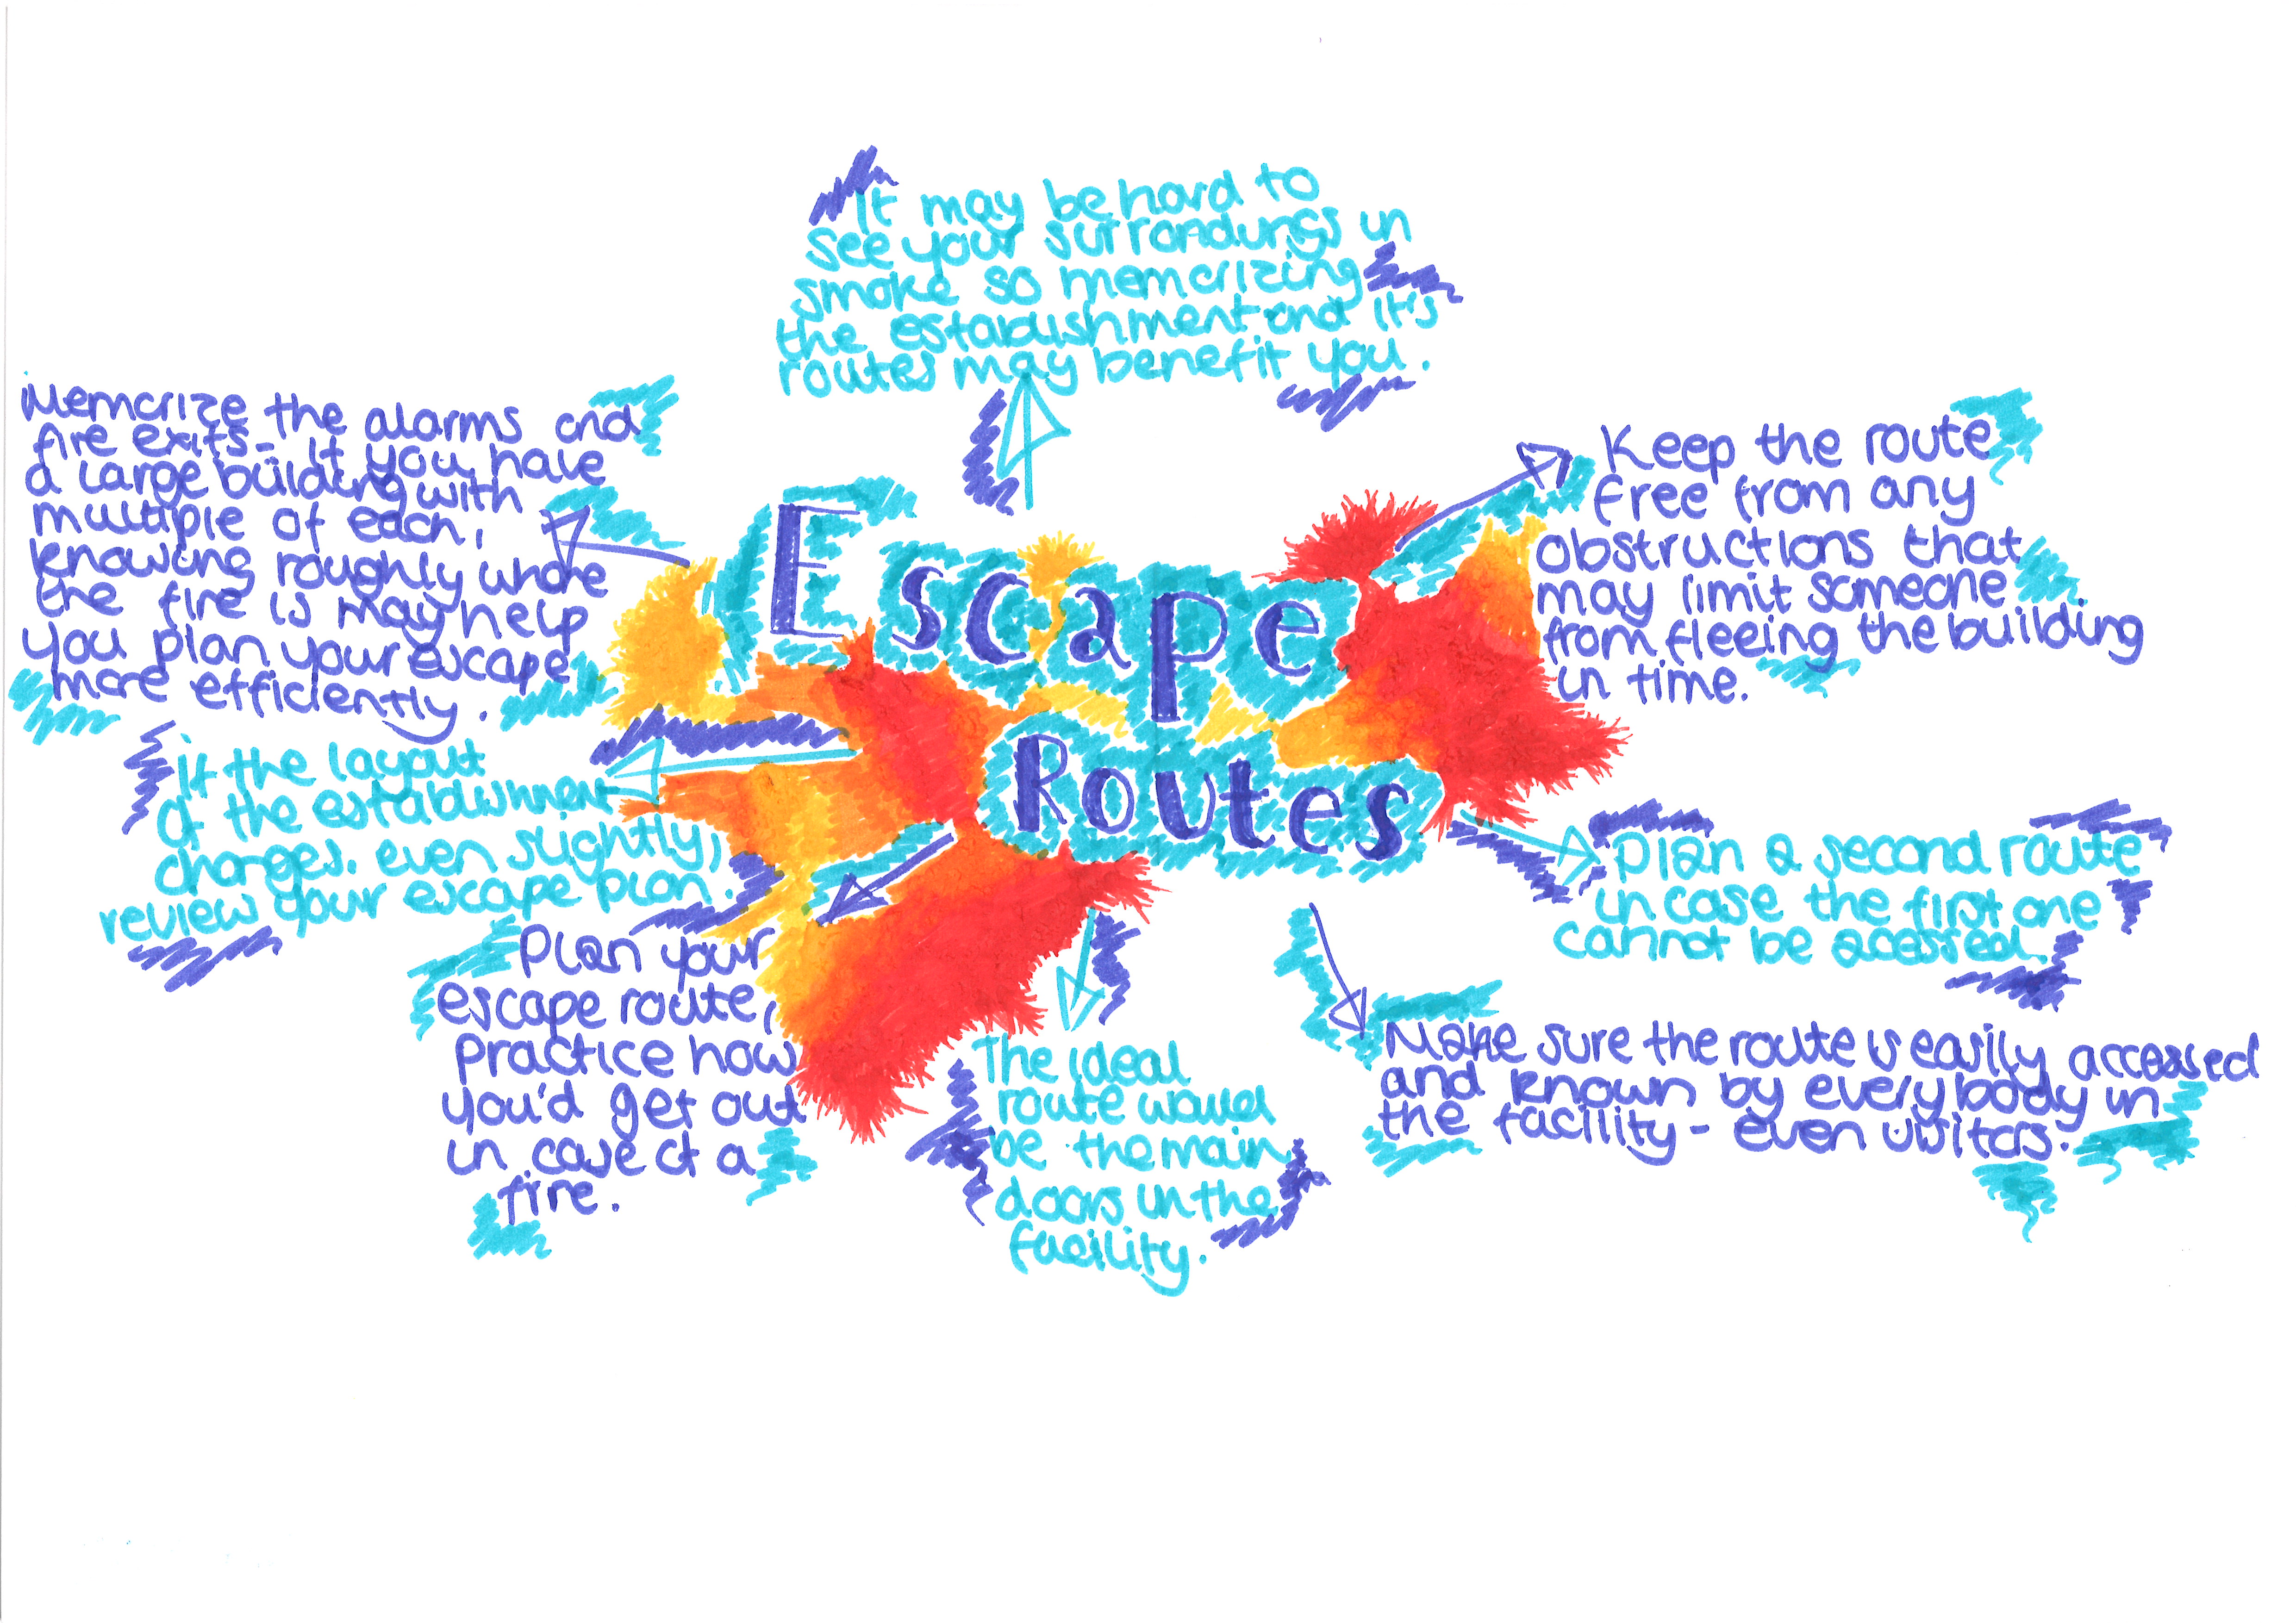 Escape
Routes
It may be hard to
see your surrondings in
smoke so memorizing
the establishment and it's
routes may benefit you.
Keep the route
free from any
obstructions that
may limit someone
from fleeing the building
in time.
Plan a second route
in case the first one
cannot be acessed.
Make sure the route is easily accessed
and known by everybody in
the facility - even visitors.
The ideal
route would
be the main
doors in the
facility.
Plan your
escape route,
practice how
you'd get out
in case of a
fire.
If the layout
of the establishment
changes, even slightly,
review your escape plan.
Memorize the alarms and
fire exits - If you have
a large building with
multiple of each,
knowing roughly where
the fire is may help
you plan your escape
more efficiently.